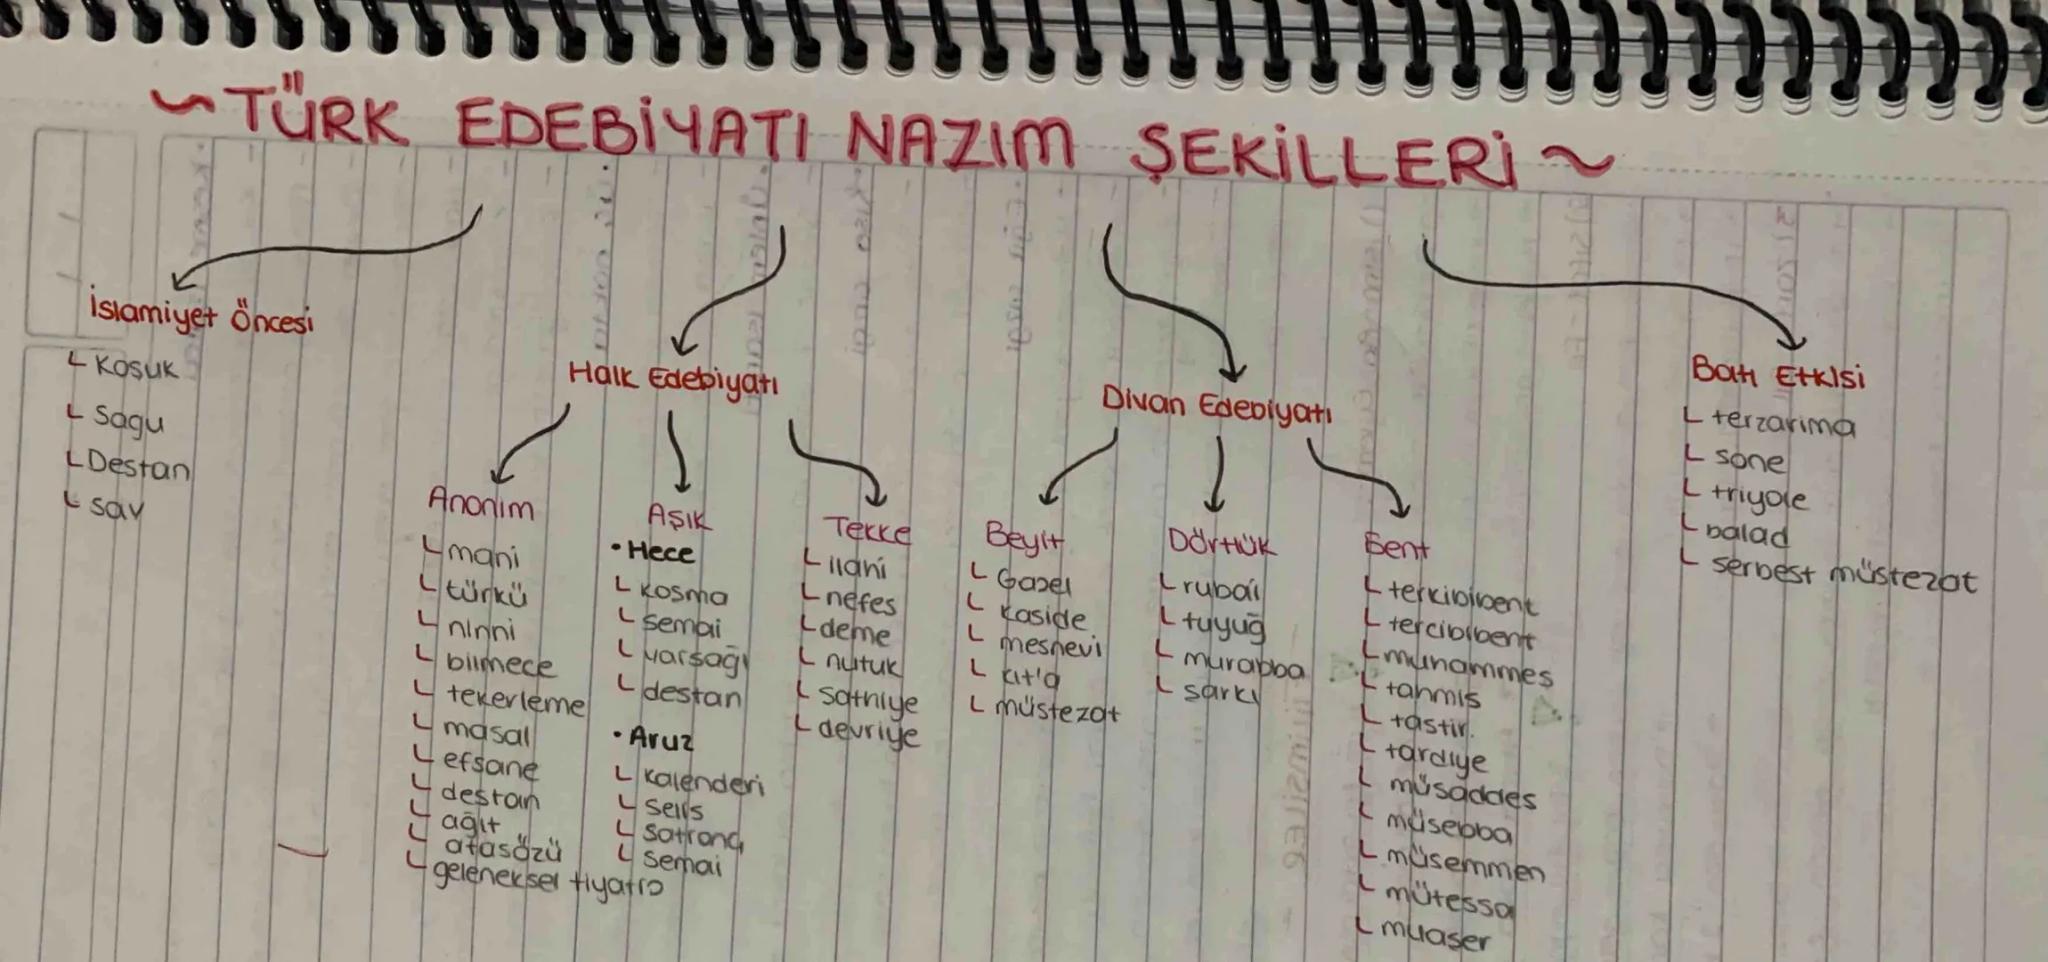 ~TÜRK EDEBİYATI NAZIM ŞEKİLLERİ~
İslamiyet Öncesi
Koşuk
Sagu
Destan
sav
Halk Edebiyatı
Anonim
mani
türkü
ninni
bilmece
tekerleme
masal
efsane
destan
ağıt
atasözü
geleneksel tiyatro
Aşık
• Hece
koşma
semai
varsağı
destan
• Aruz
kalenderi
selis
satranç
semai
Tekke
ilahi
nefes
deme
nutuk
şathiye
devriye
Divan Edebiyatı
Beyit
Gazel
kaside
mesnevi
kıt'a
müstezat
Dörtlük
rubai
tuyuğ
murabba
şarkı
Bent
terkibibent
tercibibent
muhammes
tahmis
taştir
tardiye
müsaddes
müsebba
müsemmen
mütessa
muaşer
Batı Etkisi
terzarima
sone
triyole
balad
serbest müstezat